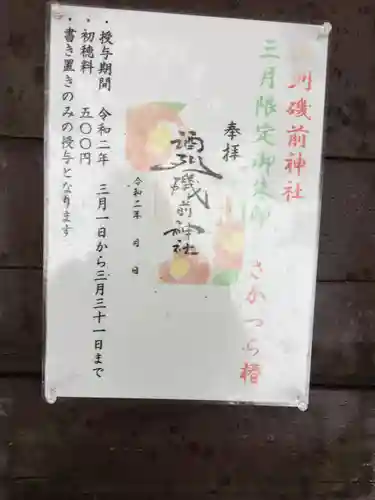 列磯前神社
三月限定御朱印 さかつら椿
奉拝
酒列磯前神社
令和二年 月 日
・授与期間 令和二年 三月一日から三月三十一日まで
・初穂料 五〇〇円
・書き置きのみの授与となります